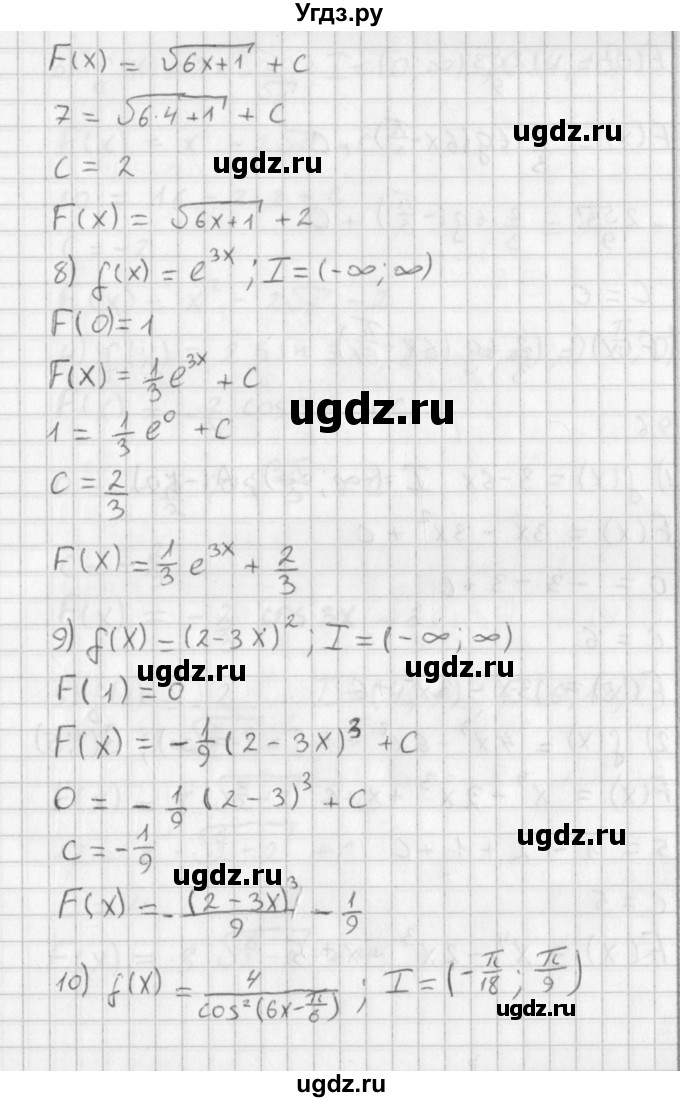 Угдз.ру
F(x) = √(6x+1) + C
7 = √(6·4+1) + C
ugdz.ru
C = 2
ugdz.ru
F(x) = √(6x+1) + 2
8) f(x) = e^(3x); I = (-∞; ∞)
F(0) = 1
F(x) = 1/3 e^(3x) + C
ugdz.ru
1 = 1/3 e^0 + C
C = 2/3
F(x) = 1/3 e^(3x) + 2/3
9) f(x) = (2-3x)^2; I = (-∞; ∞)
ugdz.ru
ugdz.ru
F(1) = 0
F(x) = -1/9 (2-3x)^3 + C
0 = -1/9 (2-3)^3 + C
ugdz.ru
C = -1/9
ugdz.ru
F(x) = -(2-3x)^3/9 - 1/9
10) f(x) = 4/cos²(6x-π/6); I = (-π/18; π/9)
ugdz.ru